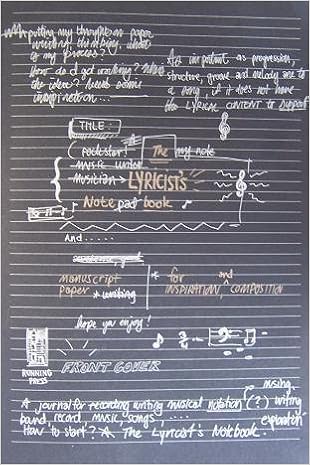 putting my thoughts on paper
writing, thinking, what
is my process?
How do I get working?
the idea? need some
inspiration...
As important as progression,
structure, groove and melody are to
a song, if it does not have
the LYRICAL CONTENT to support
TITLE:
rockstar! The my note
music writer
musician LYRICIST'S
Note pad book
And......
manuscript paper + writing
for INSPIRATION, and COMPOSITION
hope you enjoy!
RUNNING
PRESS
FRONT COVER
musing.
A journal for recording writing musical notation (?) writing
band, record, music, songs, ... explanation
How to start? A. The Lyricist's Notebook.